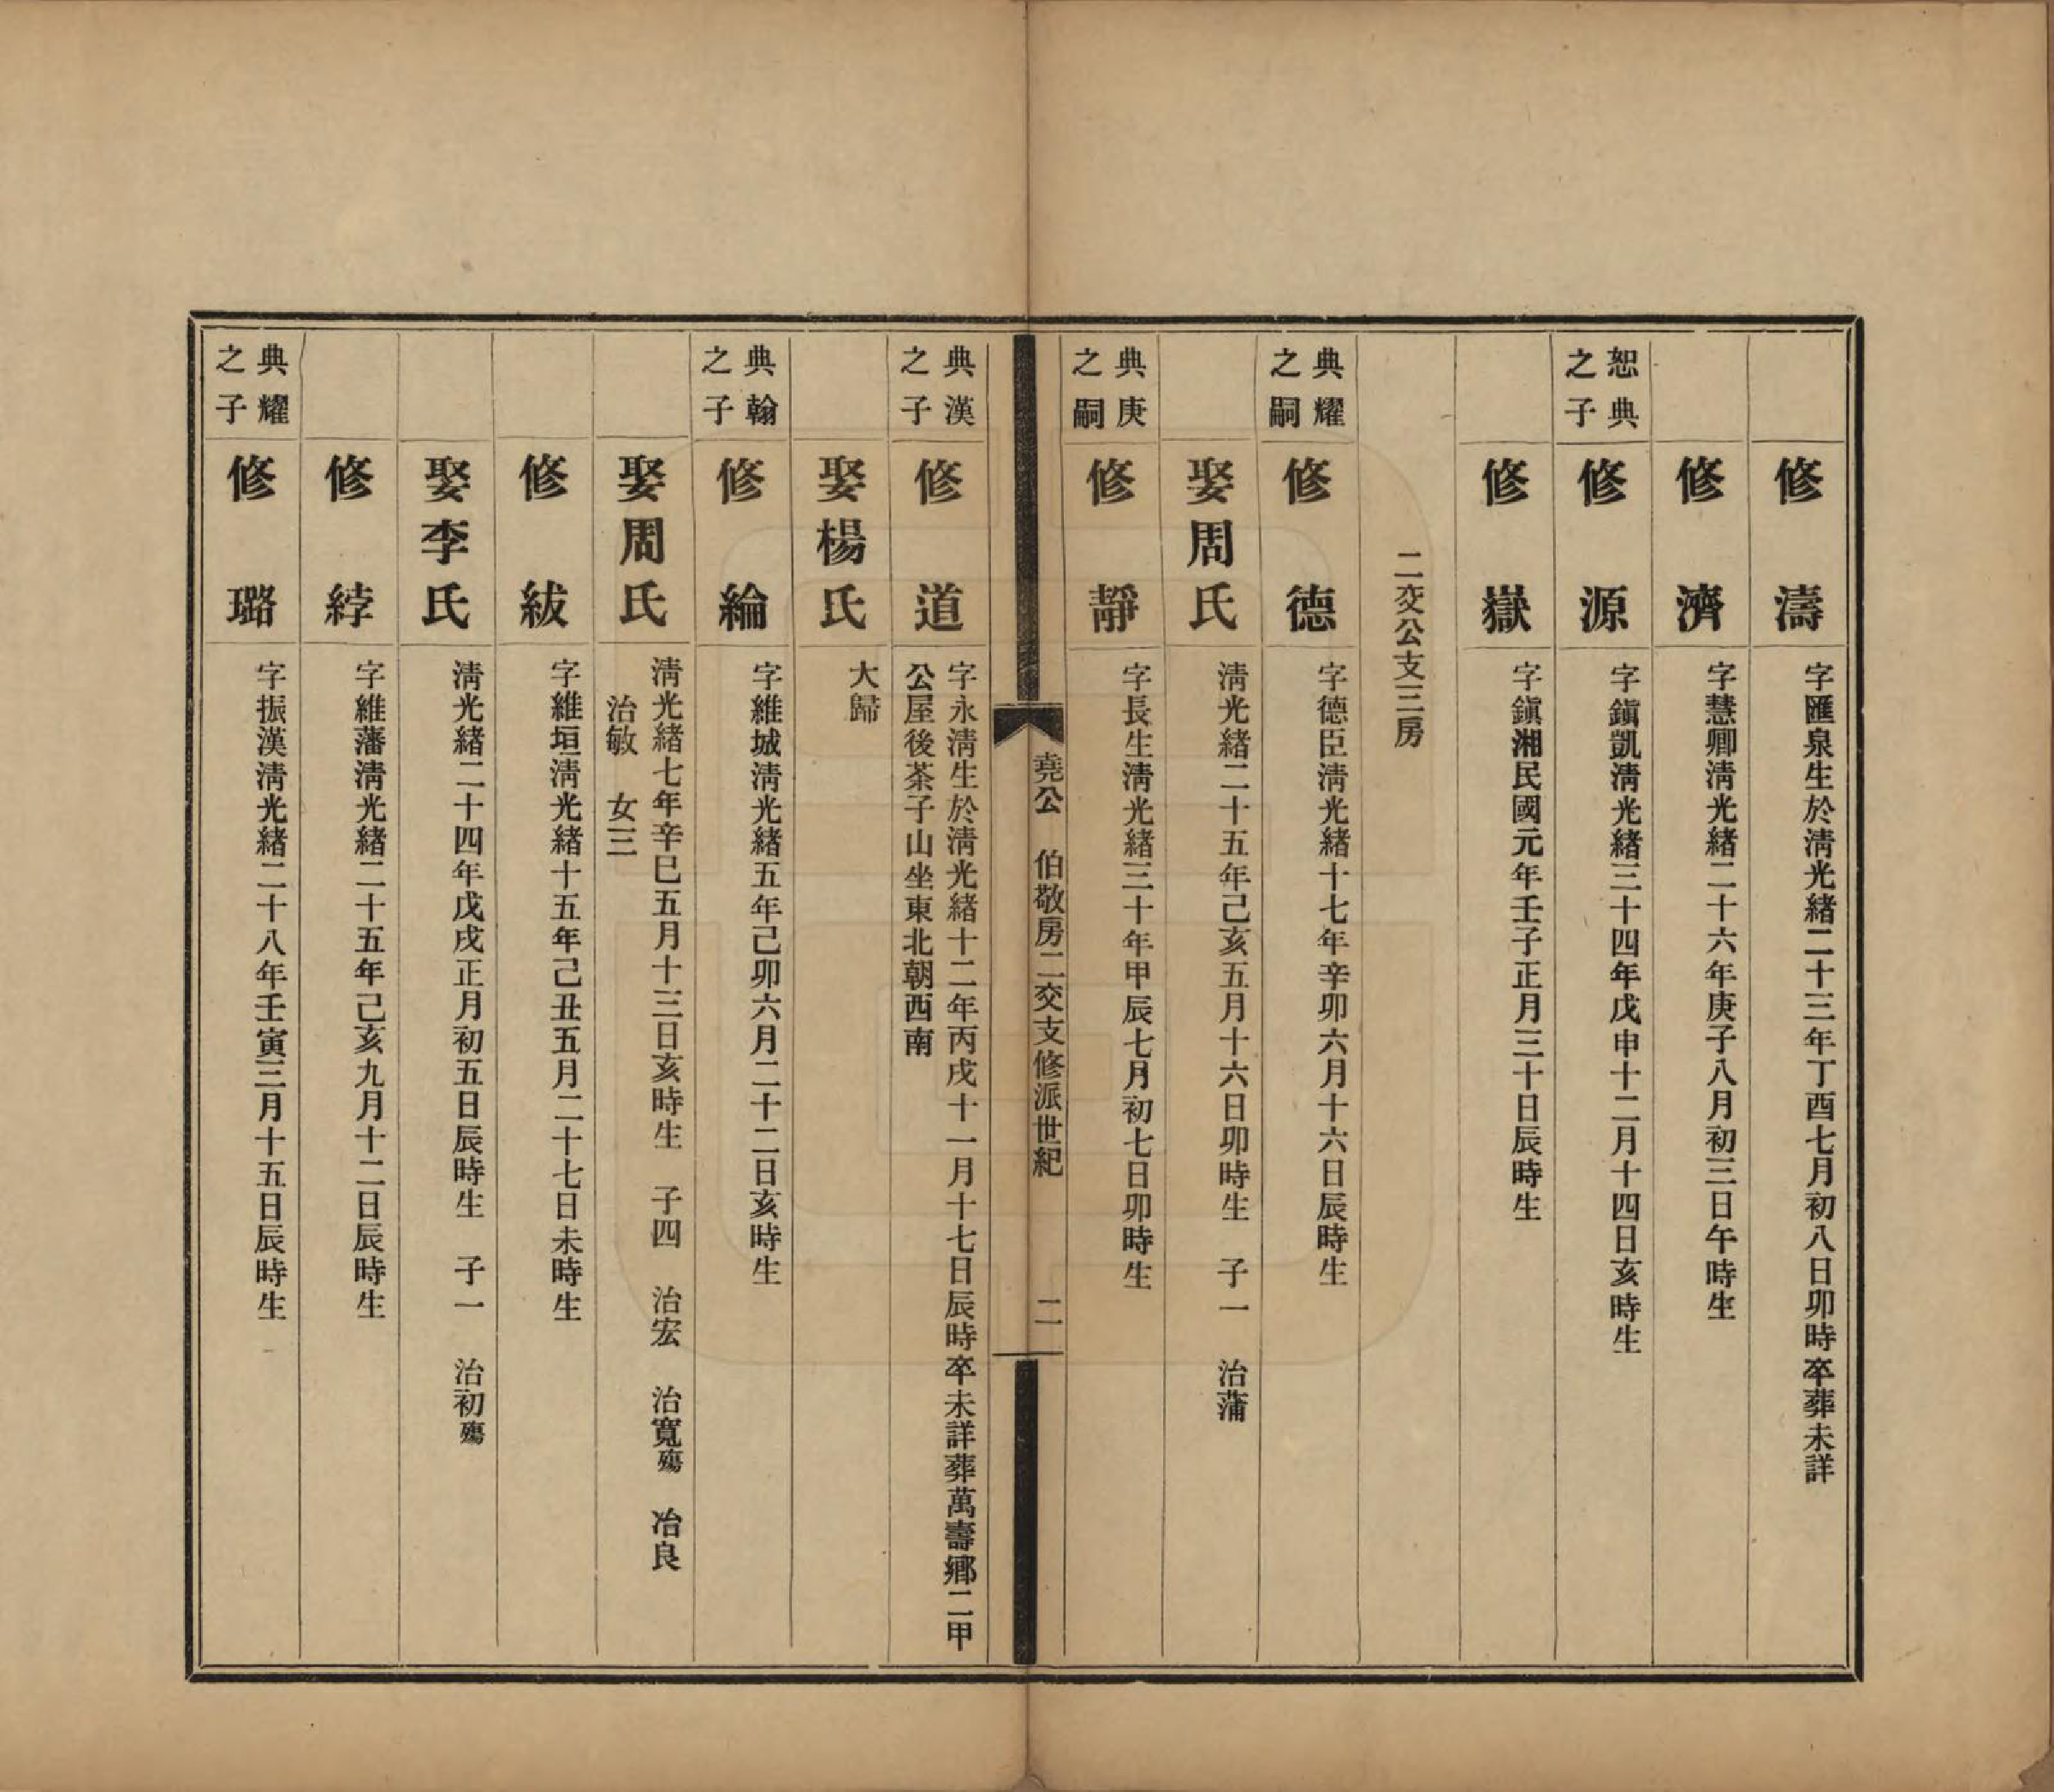 修濤
字匯泉生於淸光緒二十三年丁酉七月初八日卯時卒葬未詳
修濟
字慧卿淸光緒二十六年庚子八月初三日午時生
恕典之子
修源
字鎭凱淸光緒三十四年戊申十二月十四日亥時生
修嶽
字鎭湘民國元年壬子正月三十日辰時生
二交公支三房
典耀之嗣
修德
字德臣淸光緒十七年辛卯六月十六日辰時生
娶周氏
淸光緒二十五年己亥五月十六日卯時生 子一 治蒲
典庚之嗣
修靜
字長生淸光緒三十年甲辰七月初七日卯時生
堯公 伯敬房二交支修派世紀 二
典漢之子
修道
字永淸生於淸光緒十二年丙戌十一月十七日辰時卒未詳葬萬壽鄕二甲
公屋後茶子山坐東北朝西南
娶楊氏
大歸
典翰之子
修綸
字維城淸光緒五年己卯六月二十二日亥時生
娶周氏
淸光緒七年辛巳五月十三日亥時生 子四 治宏 治寬殤 治良
治敏 女三
修紱
字維垣淸光緒十五年己丑五月二十七日未時生
娶李氏
淸光緒二十四年戊戌正月初五日辰時生 子一 治初殤
修綍
字維藩淸光緒二十五年己亥九月十二日辰時生
典耀之子
修璐
字振漢淸光緒二十八年壬寅三月十五日辰時生